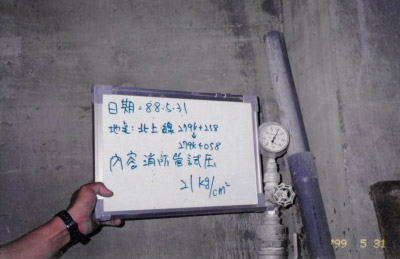 日期：88.5.31
地点：北上線 279k+258
↓
279k+058
內容 消防管試压
21 kg/cm²
'99 5 31